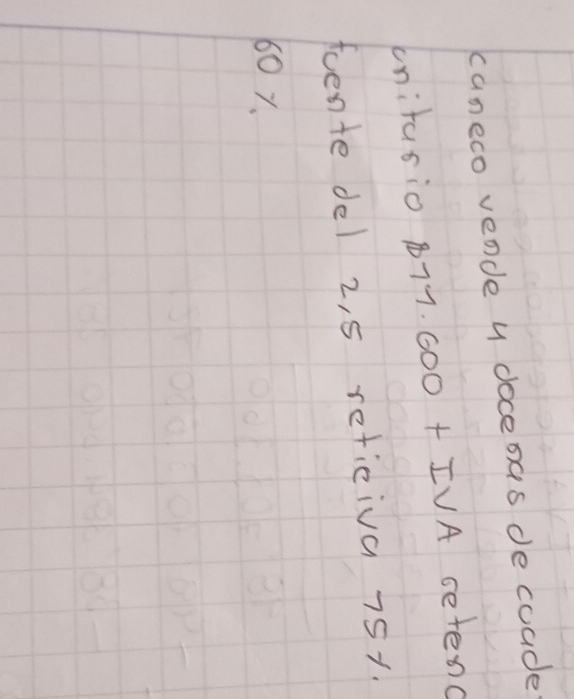 caneco vende 4 docenas de cuade
unitario $11.600 + IVA reten
fuente del 2,5 reteiva 15%.
60%.